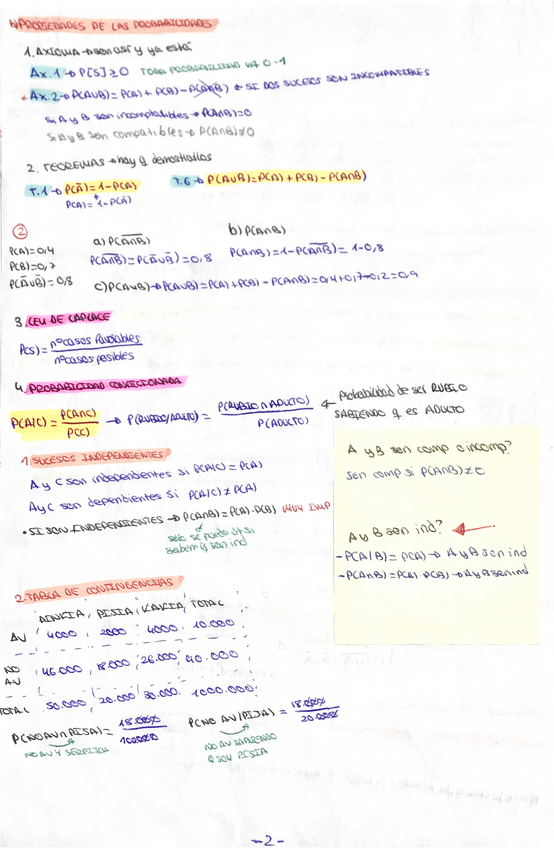 b) PROPIEDADES DE LAS PROBABILIDADES
1. AXIOMA → son así y ya está
Ax. 1 → P[S] ≥ 0 TODA PROBABILIDAD VA 0-1
+ Ax. 2 → P(AUB) = P(A) + P(B) - P(A∩B) ← SI DOS SUCESOS SON INCOMPATIBLES
Si A y B son incompatibles → P(A∩B)=0
Si A y B son compatibles → P(A∩B)≠0
2. TEOREMAS → hay q demostrarlos
T.1 → P(Ā) = 1 - P(A)
P(A) = 1 - P(Ā)
T.6 → P(AUB) = P(A) + P(B) - P(A∩B)
②
P(A)=0,4
P(B)=0,7
P(ĀUB̄) = 0,8
a) P(A̅∩̅B̅)
P(A̅∩̅B̅) = P(ĀUB̄) = 0,8
b) P(A∩B)
P(A∩B) = 1 - P(A̅∩̅B̅) = 1 - 0,8
c) P(AUB) → P(AUB) = P(A) + P(B) - P(A∩B) = 0,4+0,7-0,2 = 0,9
3. LEY DE LAPLACE
P(S) = nº casos favorables / nº casos posibles
4. PROBABILIDAD CONDICIONADA
P(A/C) = P(A∩C) / P(C) → P(RUBIO/ADULTO) = P(RUBIO ∩ ADULTO) / P(ADULTO) ← Probabilidad de ser RUBIO SABIENDO q es ADULTO
1. SUCESOS INDEPENDIENTES
A y C son independientes si P(A/C) = P(A)
A y C son dependientes si P(A/C) ≠ P(A)
• SI SON INDEPENDIENTES → P(A∩B) = P(A)·P(B) IMP
solo se puede si
sabem q son ind
A y B son comp o incomp?
son comp si P(A∩B) ≠ 0
A y B son ind?
- P(A/B) = P(A) → A y B son ind
- P(A∩B) = P(A)·P(B) → A y B son ind
2. TABLA DE CONTINGENCIAS
AINKIA, PISIA, KAKIA, TOTAL
AV 4000, 2000 4000, 10.000
NO AV 46.000, 18.000, 26.000, 90.000
TOTAL 50.000, 20.000 30.000. 1000.000
P(NO AV ∩ PISIA) = 18.000 / 100000
NO AV Y SER PISIA
P(NO AV/PISIA) = 18.000 / 20.000
NO AV SABIENDO
Q SOY PISIA
-2-